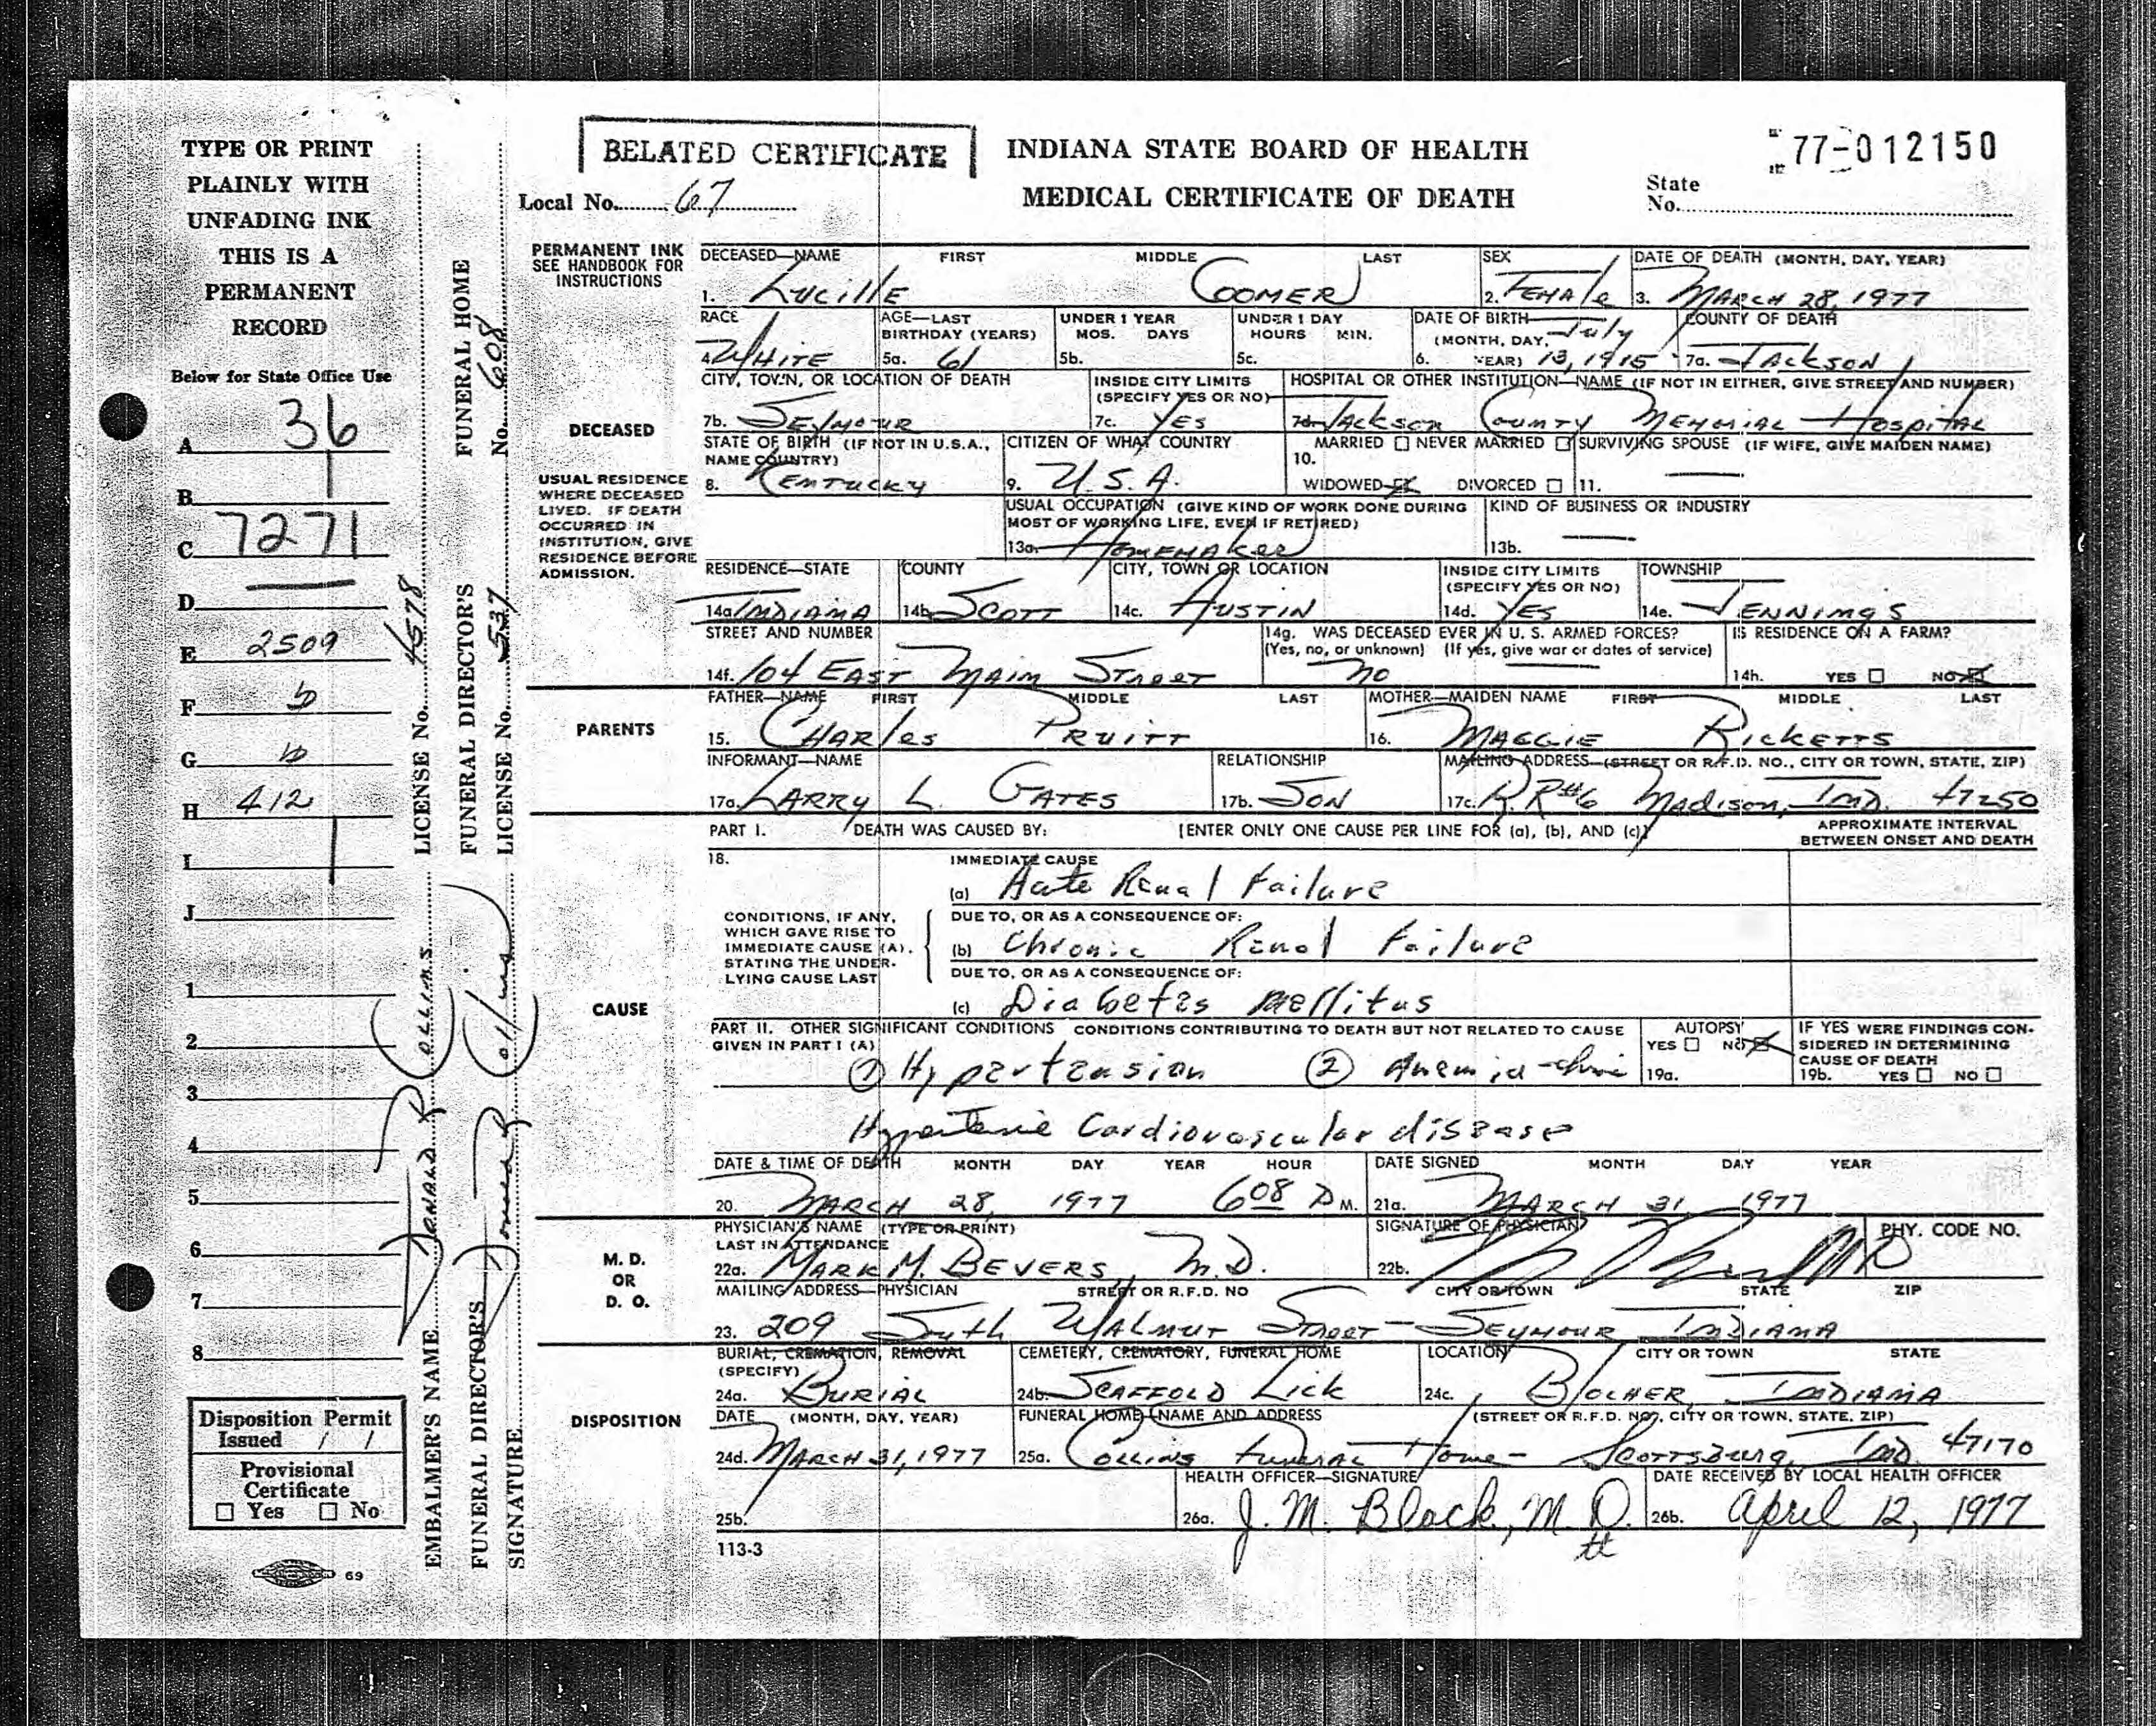 BELATED CERTIFICATE
INDIANA STATE BOARD OF HEALTH
MEDICAL CERTIFICATE OF DEATH
77-012150
State No.
Local No. 67
TYPE OR PRINT
PLAINLY WITH
UNFADING INK
THIS IS A
PERMANENT
RECORD
Below for State Office Use
A 36
B 1
C 7271
D —
E 2509
F
G
H 412
I 1
J
1
2
3
4
5
6
7
8
Disposition Permit
Issued / /
Provisional
Certificate
☐ Yes ☐ No
69
EMBALMER'S NAME Donald R Collins LICENSE No. 4578
FUNERAL DIRECTOR'S SIGNATURE Donald R Collins FUNERAL DIRECTOR'S LICENSE No. 537
FUNERAL HOME No. 608
PERMANENT INK
SEE HANDBOOK FOR
INSTRUCTIONS
DECEASED—NAME FIRST MIDDLE LAST
1. Lucille Coomer
SEX
2. Female
DATE OF DEATH (MONTH, DAY, YEAR)
3. March 28, 1977
RACE
4. White
AGE—LAST BIRTHDAY (YEARS)
5a. 61
UNDER 1 YEAR MOS. DAYS
5b.
UNDER 1 DAY HOURS MIN.
5c.
DATE OF BIRTH (MONTH, DAY, YEAR)
6. July 13, 1915
COUNTY OF DEATH
7a. Jackson
CITY, TOWN, OR LOCATION OF DEATH
7b. Seymour
INSIDE CITY LIMITS (SPECIFY YES OR NO)
7c. Yes
HOSPITAL OR OTHER INSTITUTION—NAME (IF NOT IN EITHER, GIVE STREET AND NUMBER)
7d. Jackson County Memorial Hospital
DECEASED
USUAL RESIDENCE
WHERE DECEASED
LIVED. IF DEATH
OCCURRED IN
INSTITUTION, GIVE
RESIDENCE BEFORE
ADMISSION.
STATE OF BIRTH (IF NOT IN U.S.A., NAME COUNTRY)
8. Kentucky
CITIZEN OF WHAT COUNTRY
9. U.S.A.
MARRIED ☐ NEVER MARRIED ☐
10.
WIDOWED ☒ DIVORCED ☐
SURVIVING SPOUSE (IF WIFE, GIVE MAIDEN NAME)
11. —
USUAL OCCUPATION (GIVE KIND OF WORK DONE DURING MOST OF WORKING LIFE, EVEN IF RETIRED)
13a. Homemaker
KIND OF BUSINESS OR INDUSTRY
13b. —
RESIDENCE—STATE
14a. Indiana
COUNTY
14b. Scott
CITY, TOWN OR LOCATION
14c. Austin
INSIDE CITY LIMITS (SPECIFY YES OR NO)
14d. Yes
TOWNSHIP
14e. Jennings
STREET AND NUMBER
14f. 104 East Main Street
14g. WAS DECEASED EVER IN U. S. ARMED FORCES?
(Yes, no, or unknown) (If yes, give war or dates of service)
No —
IS RESIDENCE ON A FARM?
14h. YES ☐ NO ☒
PARENTS
FATHER—NAME FIRST MIDDLE LAST
15. Charles Pruitt
MOTHER—MAIDEN NAME FIRST MIDDLE LAST
16. Maggie Ricketts
INFORMANT—NAME
17a. Larry L. Gates
RELATIONSHIP
17b. Son
MAILING ADDRESS—(STREET OR R.F.D. NO., CITY OR TOWN, STATE, ZIP)
17c. R.R#6 Madison, Ind. 47250
PART I. DEATH WAS CAUSED BY: [ENTER ONLY ONE CAUSE PER LINE FOR (a), (b), AND (c)]
APPROXIMATE INTERVAL BETWEEN ONSET AND DEATH
18.
CAUSE
IMMEDIATE CAUSE
(a) Acute Renal Failure
CONDITIONS, IF ANY,
WHICH GAVE RISE TO
IMMEDIATE CAUSE (A),
STATING THE UNDER-
LYING CAUSE LAST
DUE TO, OR AS A CONSEQUENCE OF:
(b) Chronic Renal Failure
DUE TO, OR AS A CONSEQUENCE OF:
(c) Diabetes mellitus
PART II. OTHER SIGNIFICANT CONDITIONS CONDITIONS CONTRIBUTING TO DEATH BUT NOT RELATED TO CAUSE GIVEN IN PART I (A)
① Hypertension ② Anemia
Hypertensive Cardiovascular disease
AUTOPSY
YES ☐ NO ☒
19a.
IF YES WERE FINDINGS CONSIDERED IN DETERMINING CAUSE OF DEATH
19b. YES ☐ NO ☐
DATE & TIME OF DEATH MONTH DAY YEAR HOUR
20. March 28, 1977 6 08 P M.
DATE SIGNED MONTH DAY YEAR
21a. March 31, 1977
M. D.
OR
D. O.
PHYSICIAN'S NAME (TYPE OR PRINT)
LAST IN ATTENDANCE
22a. Mark M. Bevers, M.D.
SIGNATURE OF PHYSICIAN
22b.
PHY. CODE NO.
MAILING ADDRESS—PHYSICIAN STREET OR R.F.D. NO CITY OR TOWN STATE ZIP
23. 209 South Walnut Street - Seymour Indiana
DISPOSITION
BURIAL, CREMATION, REMOVAL (SPECIFY)
24a. Burial
CEMETERY, CREMATORY, FUNERAL HOME
24b. Scaffold Lick
LOCATION CITY OR TOWN STATE
24c. Blocher, Indiana
DATE (MONTH, DAY, YEAR)
24d. March 31, 1977
FUNERAL HOME—NAME AND ADDRESS (STREET OR R.F.D. NO., CITY OR TOWN, STATE, ZIP)
25a. Collins Funeral Home - Scottsburg, Ind. 47170
25b.
HEALTH OFFICER—SIGNATURE
26a. J. M. Black, M.D.
DATE RECEIVED BY LOCAL HEALTH OFFICER
26b. April 12, 1977
113-3